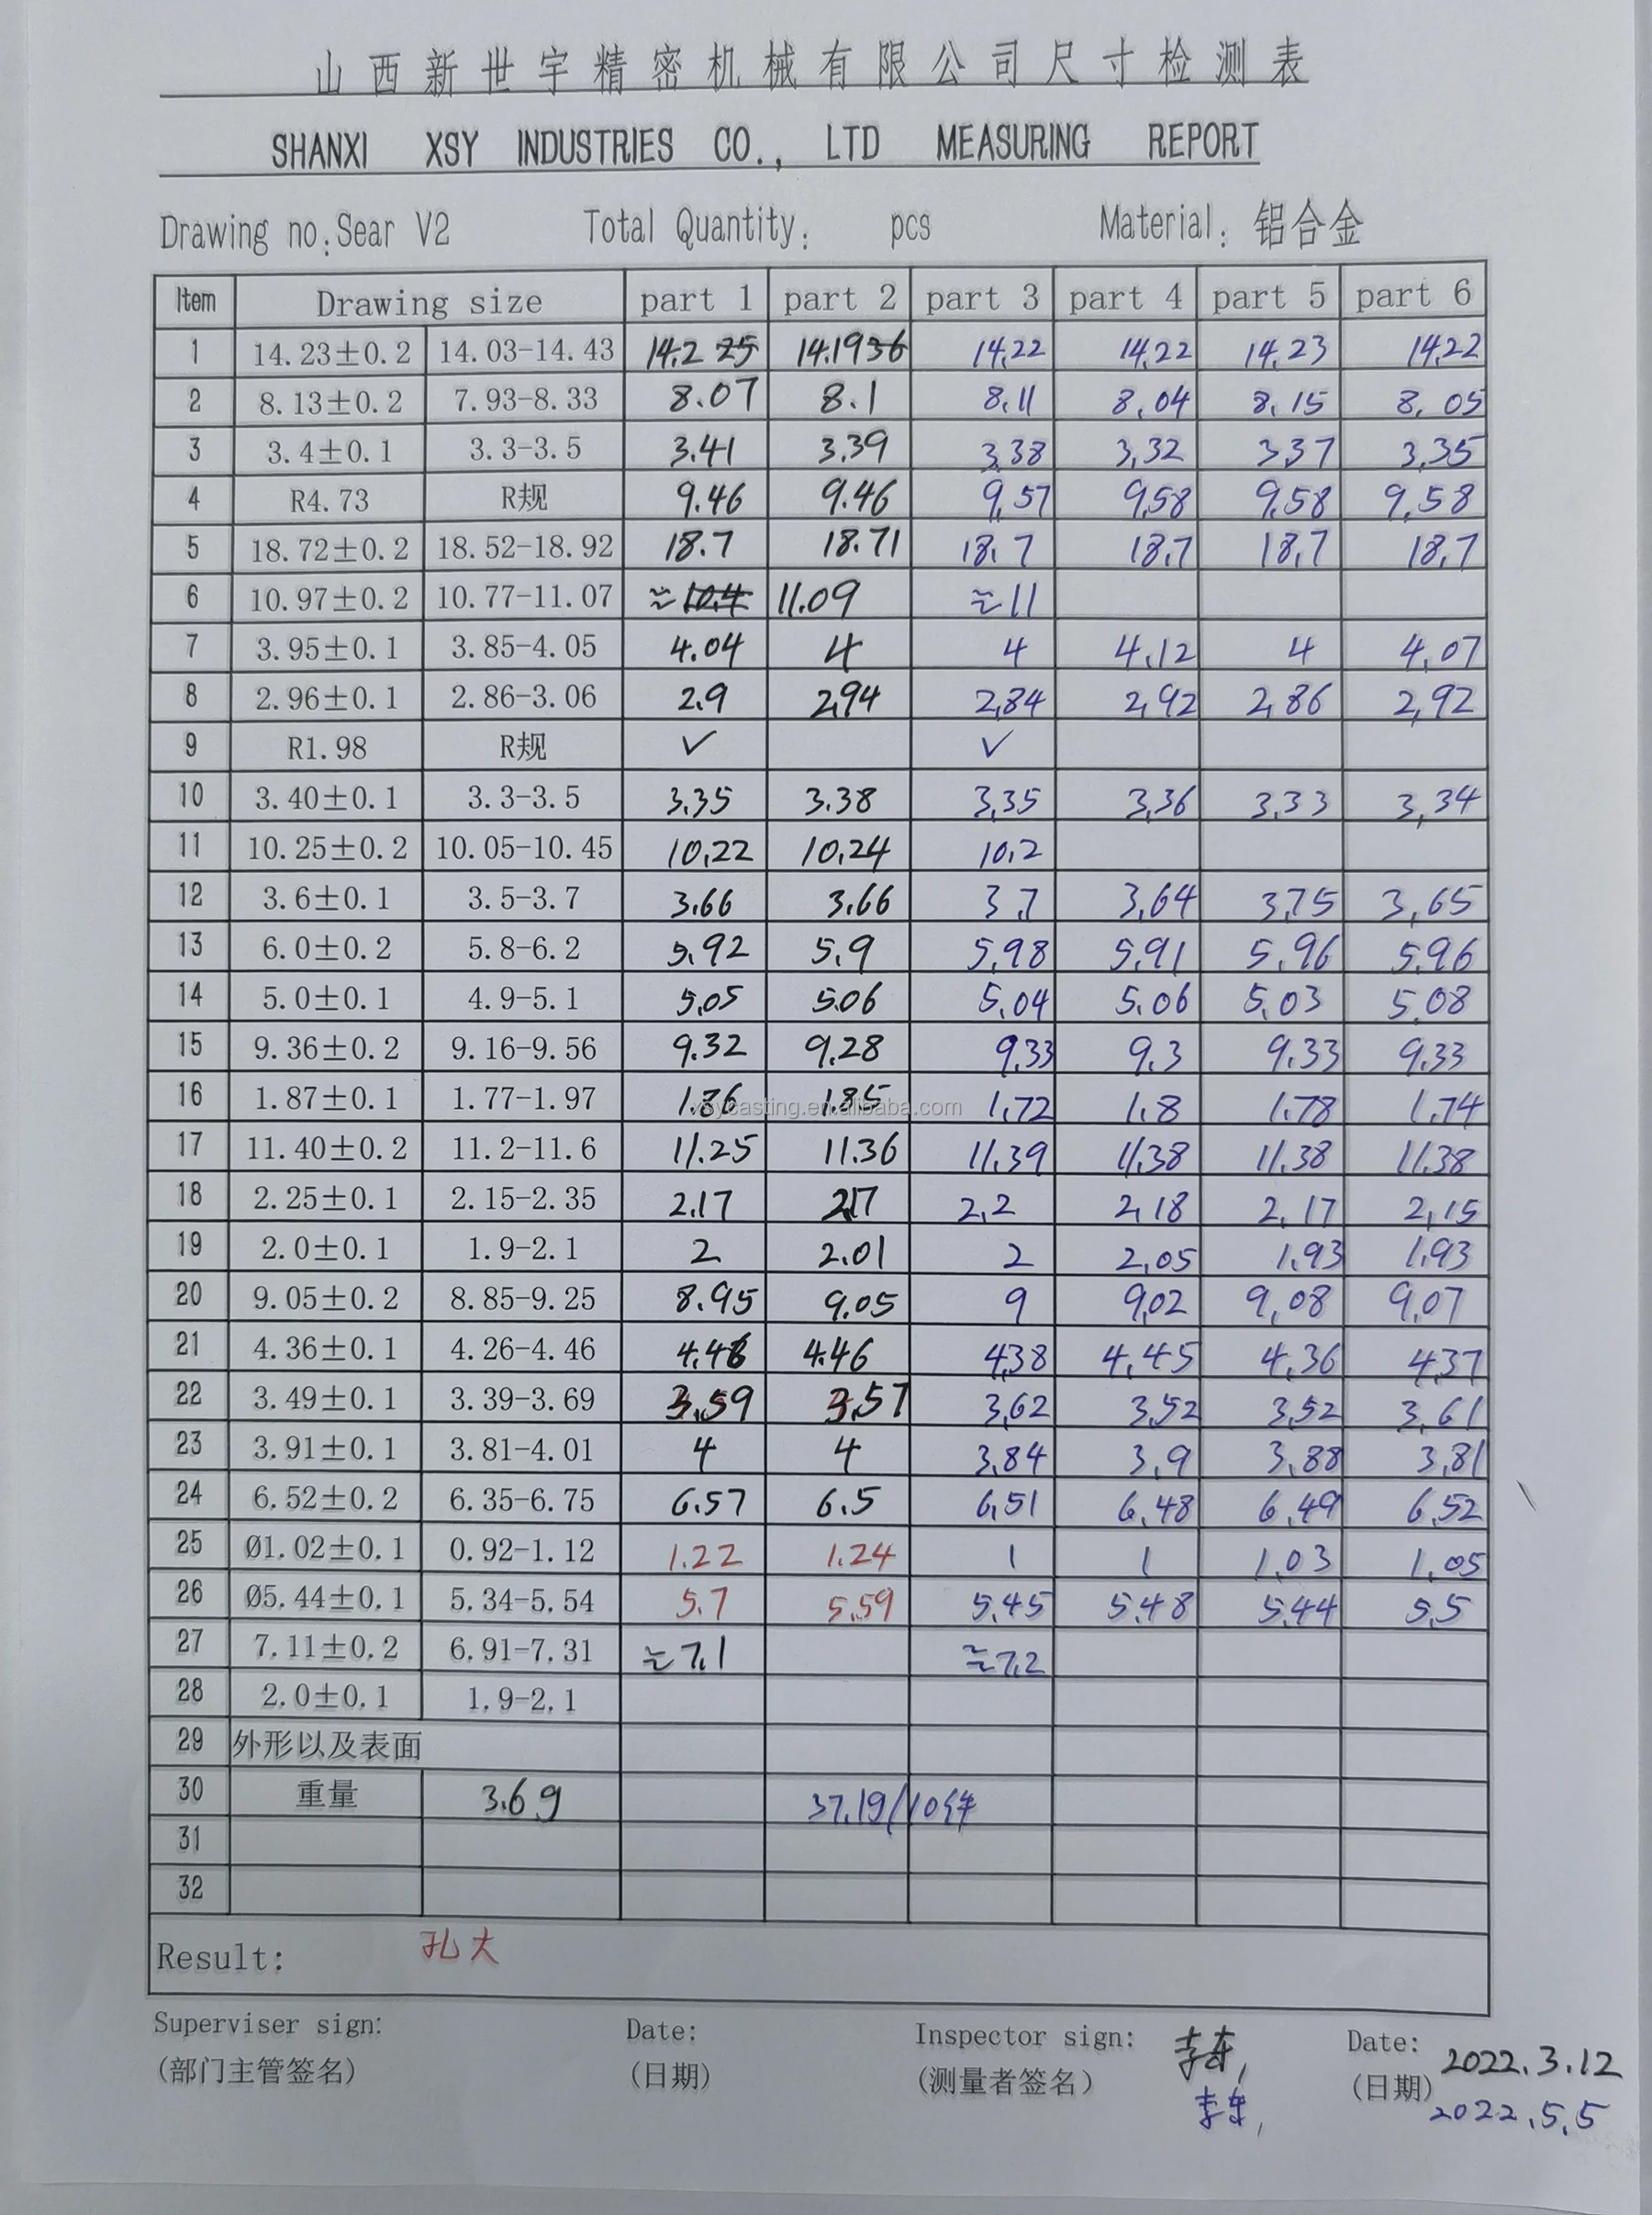 山西新世宇精密机械有限公司尺寸检测表
SHANXI XSY INDUSTRIES CO., LTD MEASURING REPORT
Drawing no:Sear V2 Total Quantity: pcs Material: 铝合金
Item Drawing size part 1 part 2 part 3 part 4 part 5 part 6
1 14.23±0.2 14.03-14.43 14.2 14.19 14.22 14.22 14.23 14.22
2 8.13±0.2 7.93-8.33 8.07 8.1 8.11 8.04 8.15 8.05
3 3.4±0.1 3.3-3.5 3.41 3.39 3.38 3.32 3.37 3.35
4 R4.73 R规 9.46 9.46 9.57 9.58 9.58 9.58
5 18.72±0.2 18.52-18.92 18.7 18.71 18.7 18.7 18.7 18.7
6 10.97±0.2 10.77-11.07 ≈10.4 11.09 ≈11
7 3.95±0.1 3.85-4.05 4.04 4 4 4.12 4 4.07
8 2.96±0.1 2.86-3.06 2.9 2.94 2.84 2.92 2.86 2.92
9 R1.98 R规 ✓ ✓
10 3.40±0.1 3.3-3.5 3.35 3.38 3.35 3.36 3.33 3.34
11 10.25±0.2 10.05-10.45 10.22 10.24 10.2
12 3.6±0.1 3.5-3.7 3.66 3.66 3.7 3.64 3.75 3.65
13 6.0±0.2 5.8-6.2 5.92 5.9 5.98 5.91 5.96 5.96
14 5.0±0.1 4.9-5.1 5.05 5.06 5.04 5.06 5.03 5.08
15 9.36±0.2 9.16-9.56 9.32 9.28 9.33 9.3 9.33 9.33
16 1.87±0.1 1.77-1.97 1.86 1.85 1.72 1.8 1.78 1.74
xsycasting.en.alibaba.com
17 11.40±0.2 11.2-11.6 11.25 11.36 11.39 11.38 11.38 11.38
18 2.25±0.1 2.15-2.35 2.17 2.17 2.2 2.18 2.17 2.15
19 2.0±0.1 1.9-2.1 2 2.01 2 2.05 1.93 1.93
20 9.05±0.2 8.85-9.25 8.95 9.05 9 9.02 9.08 9.07
21 4.36±0.1 4.26-4.46 4.46 4.38 4.45 4.36 4.37
22 3.49±0.1 3.39-3.69 3.59 3.57 3.62 3.52 3.52 3.61
23 3.91±0.1 3.81-4.01 4 4 3.84 3.9 3.88 3.81
24 6.52±0.2 6.35-6.75 6.57 6.5 6.51 6.48 6.49 6.52
25 Ø1.02±0.1 0.92-1.12 1.22 1.24 1 1 1.03 1.05
26 Ø5.44±0.1 5.34-5.54 5.7 5.59 5.45 5.48 5.44 5.5
27 7.11±0.2 6.91-7.31 ≈7.1 ≈7.2
28 2.0±0.1 1.9-2.1
29 外形以及表面
30 重量 3.6g 37.1g/10件
31
32
Result: 孔大
Superviser sign: Date: Inspector sign: Date: 2022.3.12
(部门主管签名) (日期) (测量者签名) (日期) 2022.5.5